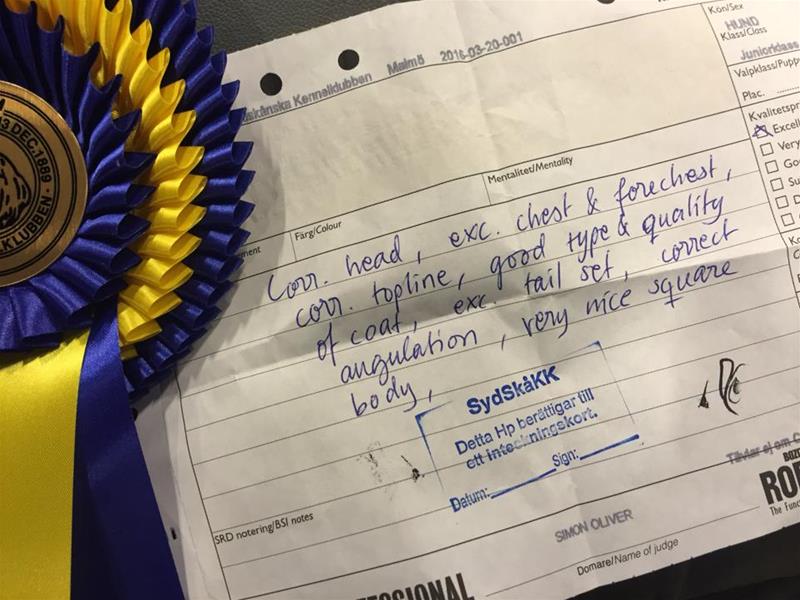 3 DEC. 1889
KLUBBEN
skånska Kennelklubben Malmö 2016-03-20-001
Kön/Sex
HUND
Klass/Class
Juniorklass
Valpklass/Pupp
Plac.
Kvalitetspr
Excell
Very
Go
Su
D
Mentalitet/Mentality
Färg/Colour
ment
Corr. head, exc. chest & forechest,
corr. topline, good type & quality
of coat, exc. tail set, correct
angulation, very nice square
body,
SydSkåKK
Detta Hp berättigar till
ett inteckningskort.
Datum: Sign:
SRD notering/BSI notes
SIMON OLIVER
Domare/Name of judge
Tillvar ej om C
BOZI
RO
The Func
ESSIONAL